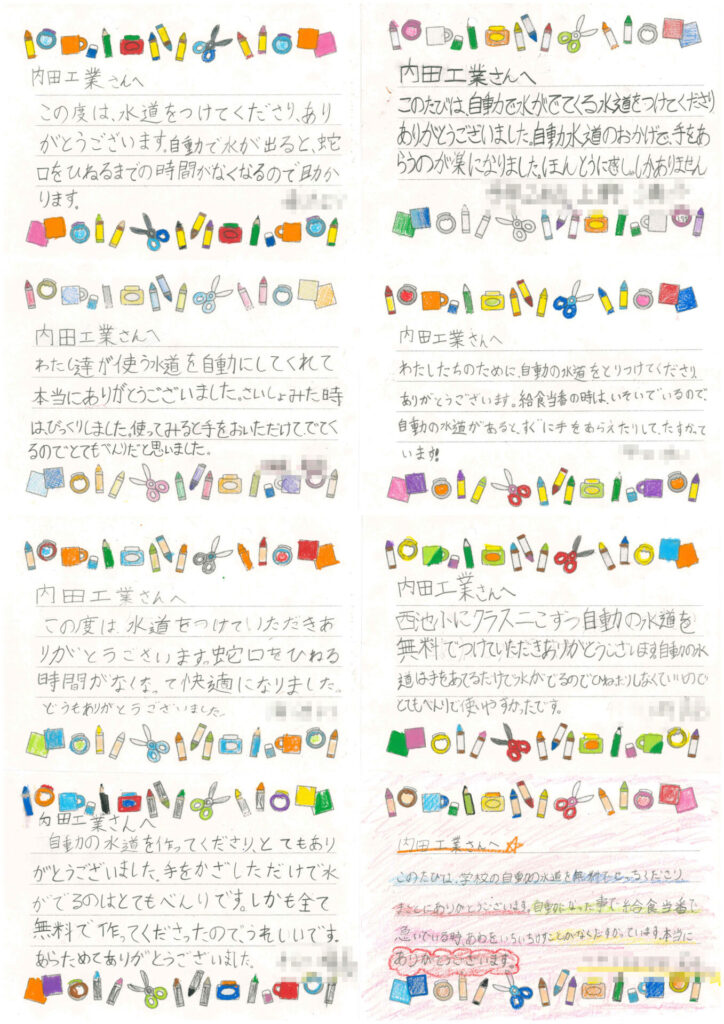 内田工業さんへ
この度は、水道をつけてくださり、あり
がとうございます。自動で水が出ると、蛇
口をひねるまでの時間がなくなるので助か
ります。
内田工業さんへ
このたびは、自動で水がでてくる水道をつけてくださり
ありがとうございました。自動水道のおかげで、手をあ
らうのが楽になりました。ほんとうに
内田工業さんへ
わたし達が使う水道を自動にしてくれて
本当にありがとうございました。さいしょみた時
は、びっくりしました。使ってみると手をおいただけて、でてく
るのでとてもべんりだと思いました。
内田工業さんへ
わたしたちのために、自動の水道をとりつけてくださり、
ありがとうございます。給食当番の時は、いそいでいるので、
自動の水道があると、すぐに手をあらえたりして、たすかって
います!
内田工業さんへ
この度は、水道をつけていただきあ
りがとうございます。蛇口をひねる
時間がなくなって快適になりました。
どうもありがとうございました。
内田工業さんへ
西池小にクラスニこずつ自動の水道を
無料でつけていただきありがとうございます。自動の水
道は手をあてるだけで水がでるのでひねったりしなくていいので
とてもべんりで使いやすかったです。
内田工業さんへ
自動の水道を作ってくださり、とてもあり
がとうございました。手をかざしただけで水
がでるのはとてもべんりです。しかも全て
無料で作ってくださったのでうれしいです。
あらためてありがとうございました。
内田工業さんへ
このたびは、学校の自動の水道を無料で くださり、
まことにありがとうございます。自動になった事で給食当番で
急いでいる時、 たすかっています。本当に
ありがとうございます。